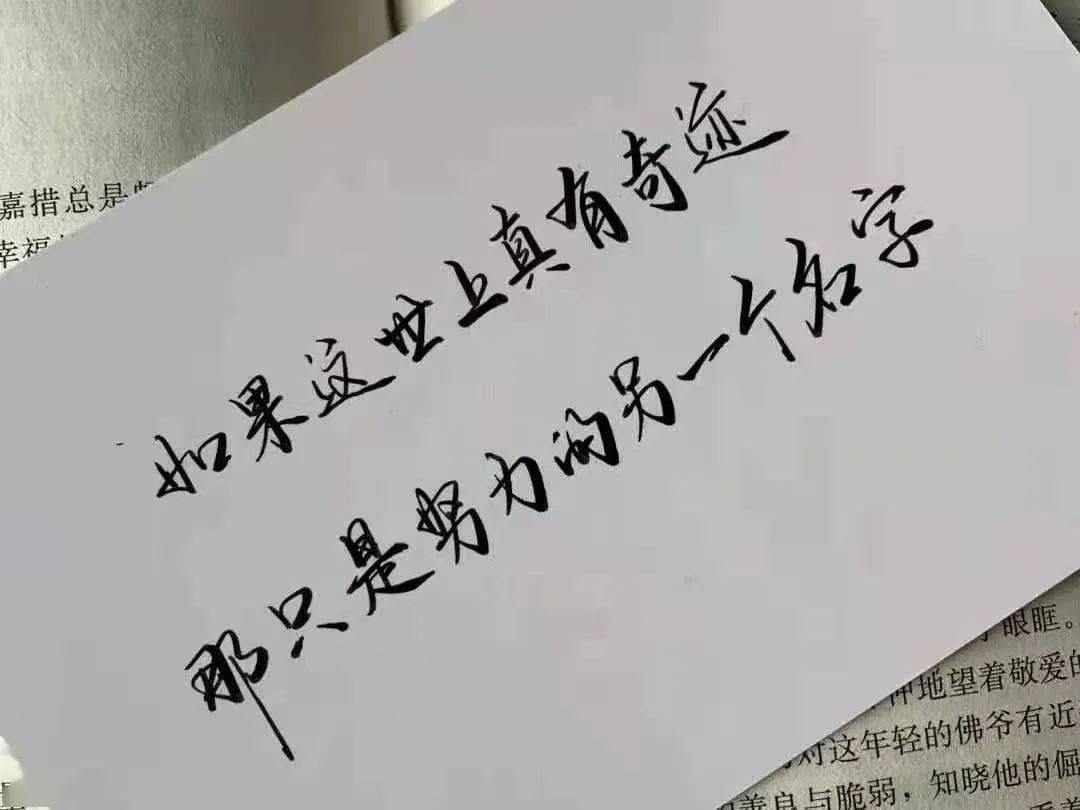 嘉措总是
幸福
如果这世上真有奇迹
那只是努力的另一个名字
眼眶。
地望着敬爱的
对这年轻的佛爷有近
善良与脆弱，知晓他的倔